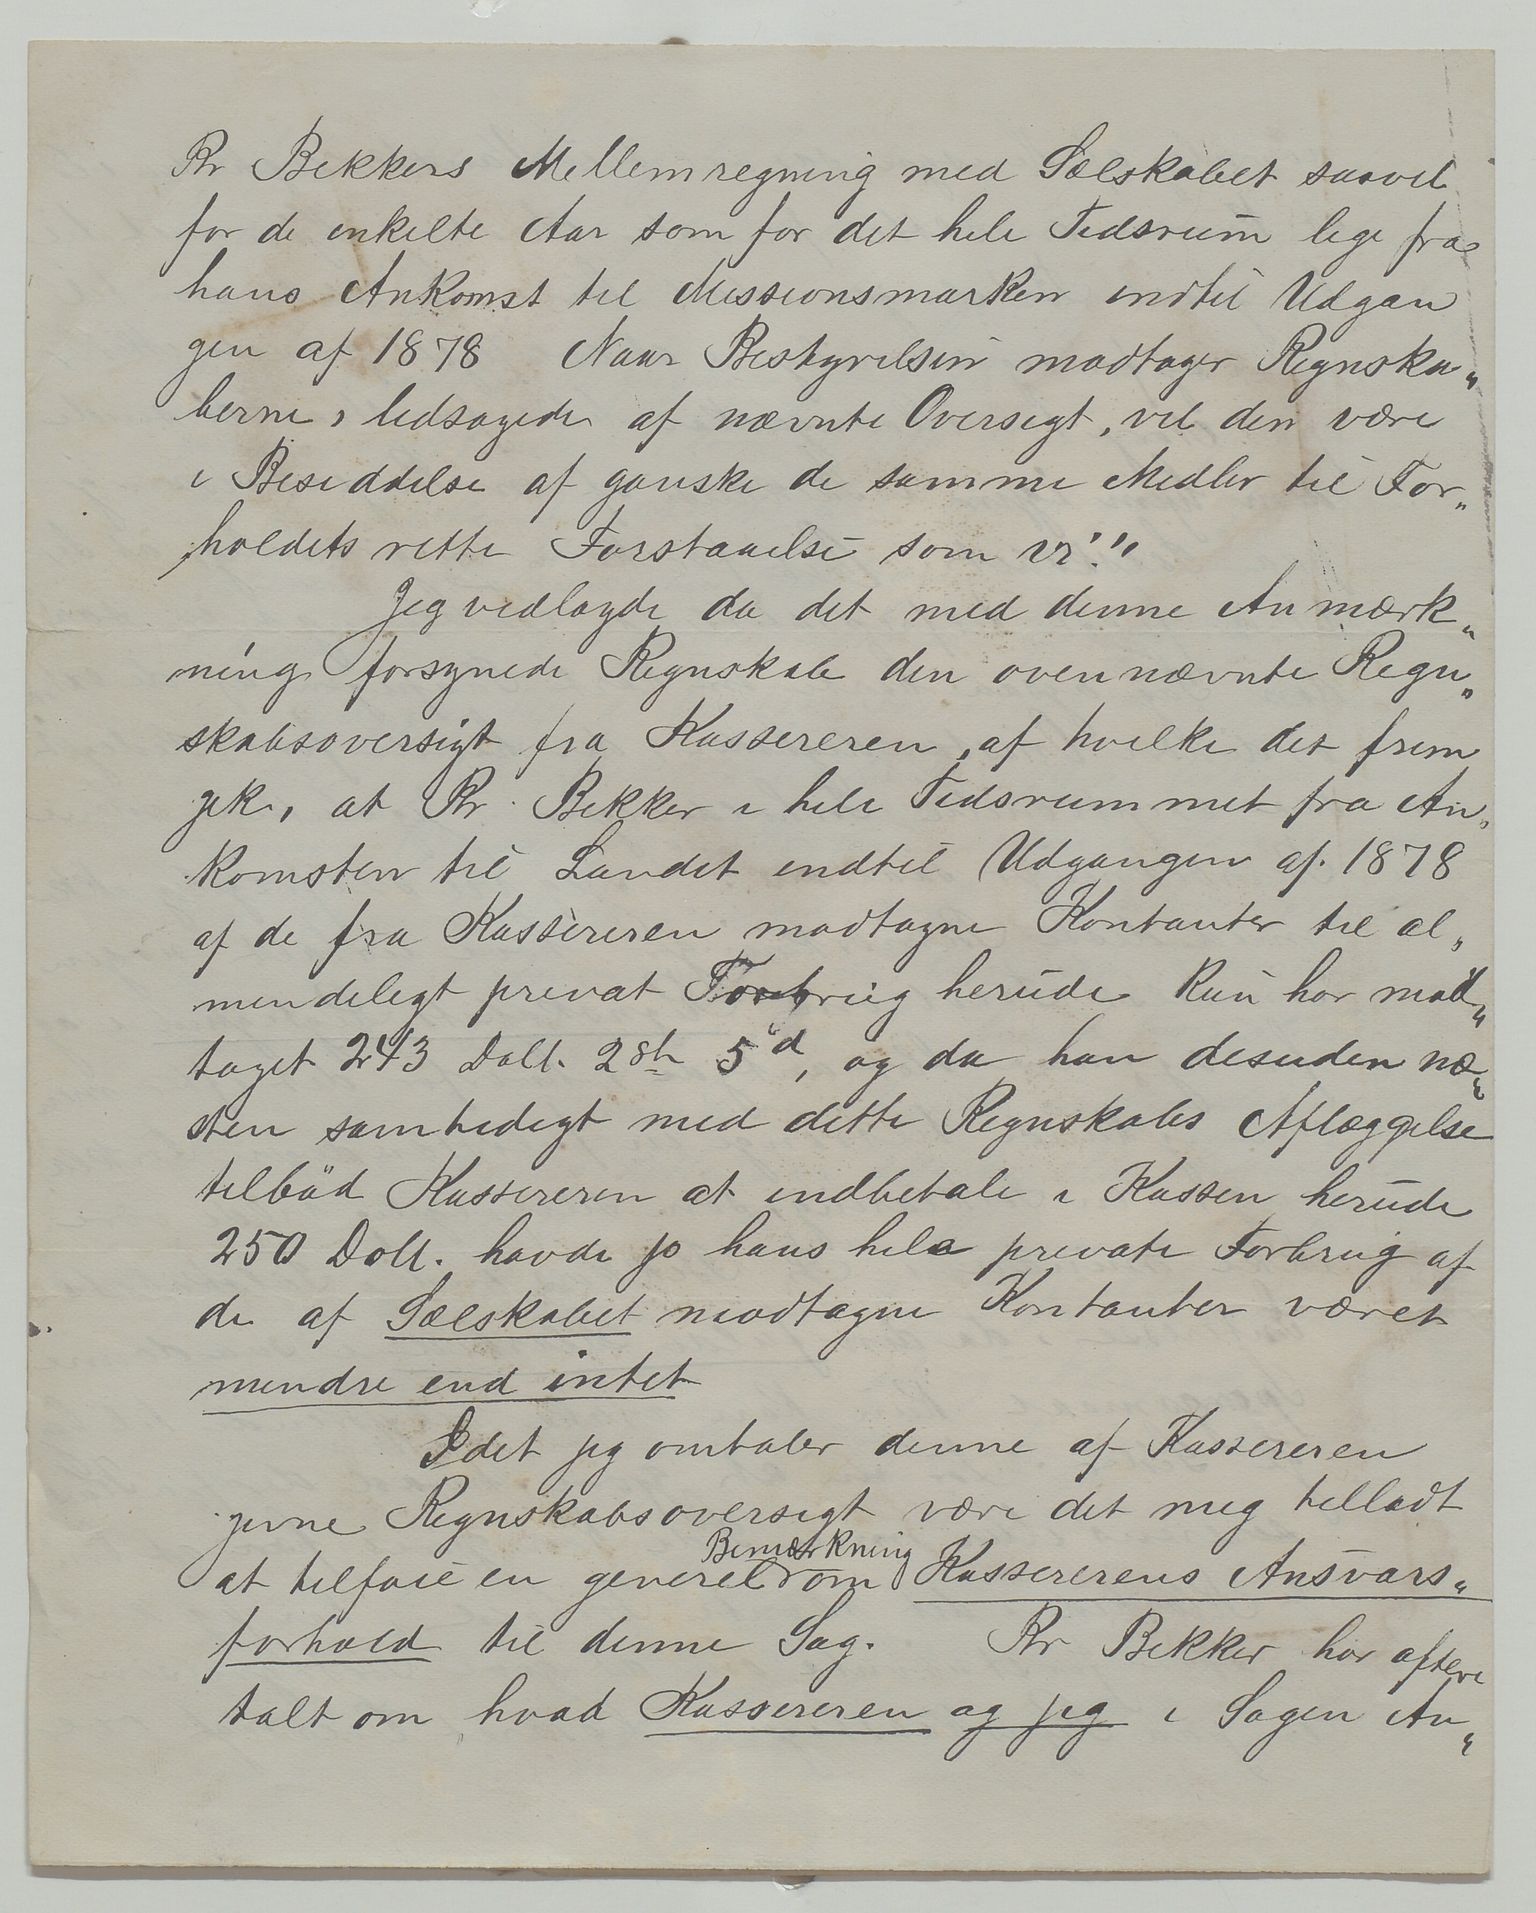 Br Bekkers Mellemregning med Selskabet saavel
for de enkelte Aar som for det hele Tidsrum lige fra
hans Ankomst til Missionsmarken indtil Udgan
gen af 1878 Naar Bestyrelsen modtager Regnska„
berne, ledsagede af nævnte Oversigt, vil den være
i Besiddelse af ganske de samme Midler til For„
holdets rette Forstaaelse som vi."
Jeg vedlagde da det med denne Anmærk„
ning forsynede Regnskab den ovennævnte Regn„
skabsoversigt fra Kassereren, af hvilke det frem
gik, at Br. Bekker i hele Tidsrummet fra An„
komsten til Landet indtil Udgangen af 1878
af de fra Kassereren modtagne Kontanter til al„
mindeligt privat Forbrug herude kun har mod„
taget 243 Doll. 2 sh 5 d, og da han desuden næ„
sten samtidigt med dette Regnskabs Aflæggelse
tilböd Kassereren at indbetale i Kassen herude
250 Doll. havde jo hans hele private Forbrug af
de af Selskabet modtagne Kontanter været
mindre end intet
Idet jeg omtaler denne af Kassereren
givne Regnskabsoversigt være det mig tilladt
at tilføie en generel Bemærkning om Kassererens Ansvars„
forhold til denne Sag. Br Bekker har oftere
talt om hvad Kassereren og jeg i Sagen An„